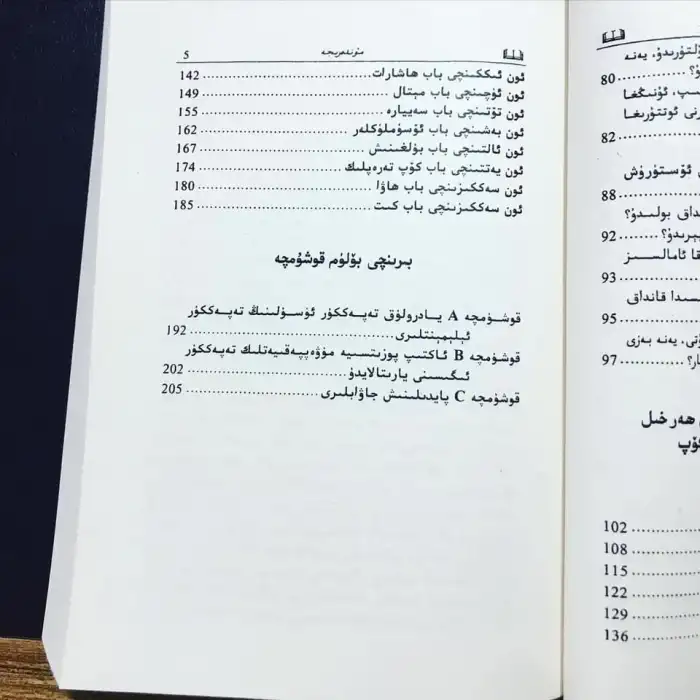 5 مۇندەرىجە
ئون ئىككىنچى باب ھاشارات 142
ئون ئۈچىنچى باب مېتال 149
ئون تۆتىنچى باب سەييارە 155
ئون بەشىنچى باب ئۆسۈملۈكلەر 162
ئون ئالتىنچى باب بۇلغىنىش 167
ئون يەتتىنچى باب كۆپ تەرەپلىك 174
ئون سەككىزىنچى باب ھاۋا 180
ئون سەككىزىنچى باب كىت 185
بىرىنچى بۆلۈم قوشۇمچە
قوشۇمچە A يادرولۇق تەپەككۇر ئۇسۇلىنىڭ تەپەككۇر
ئېلېمېنتلىرى 192
قوشۇمچە B ئاكتىپ پوزىتسىيە مۇۋەپپەقىيەتلىك تەپەككۇر
ئىگىسىنى يارىتالايدۇ 202
قوشۇمچە C پايدىلىنىش جاۋابلىرى 205
يەنە
80
ئۇنىڭغا
82
ئۆستۈرۈش
88
قانداق بولىدۇ؟
92
ئامالسىز
93
قانداق
95
يەنە بەزى
97
ھەر خىل
كۆپ
102
108
115
122
129
136